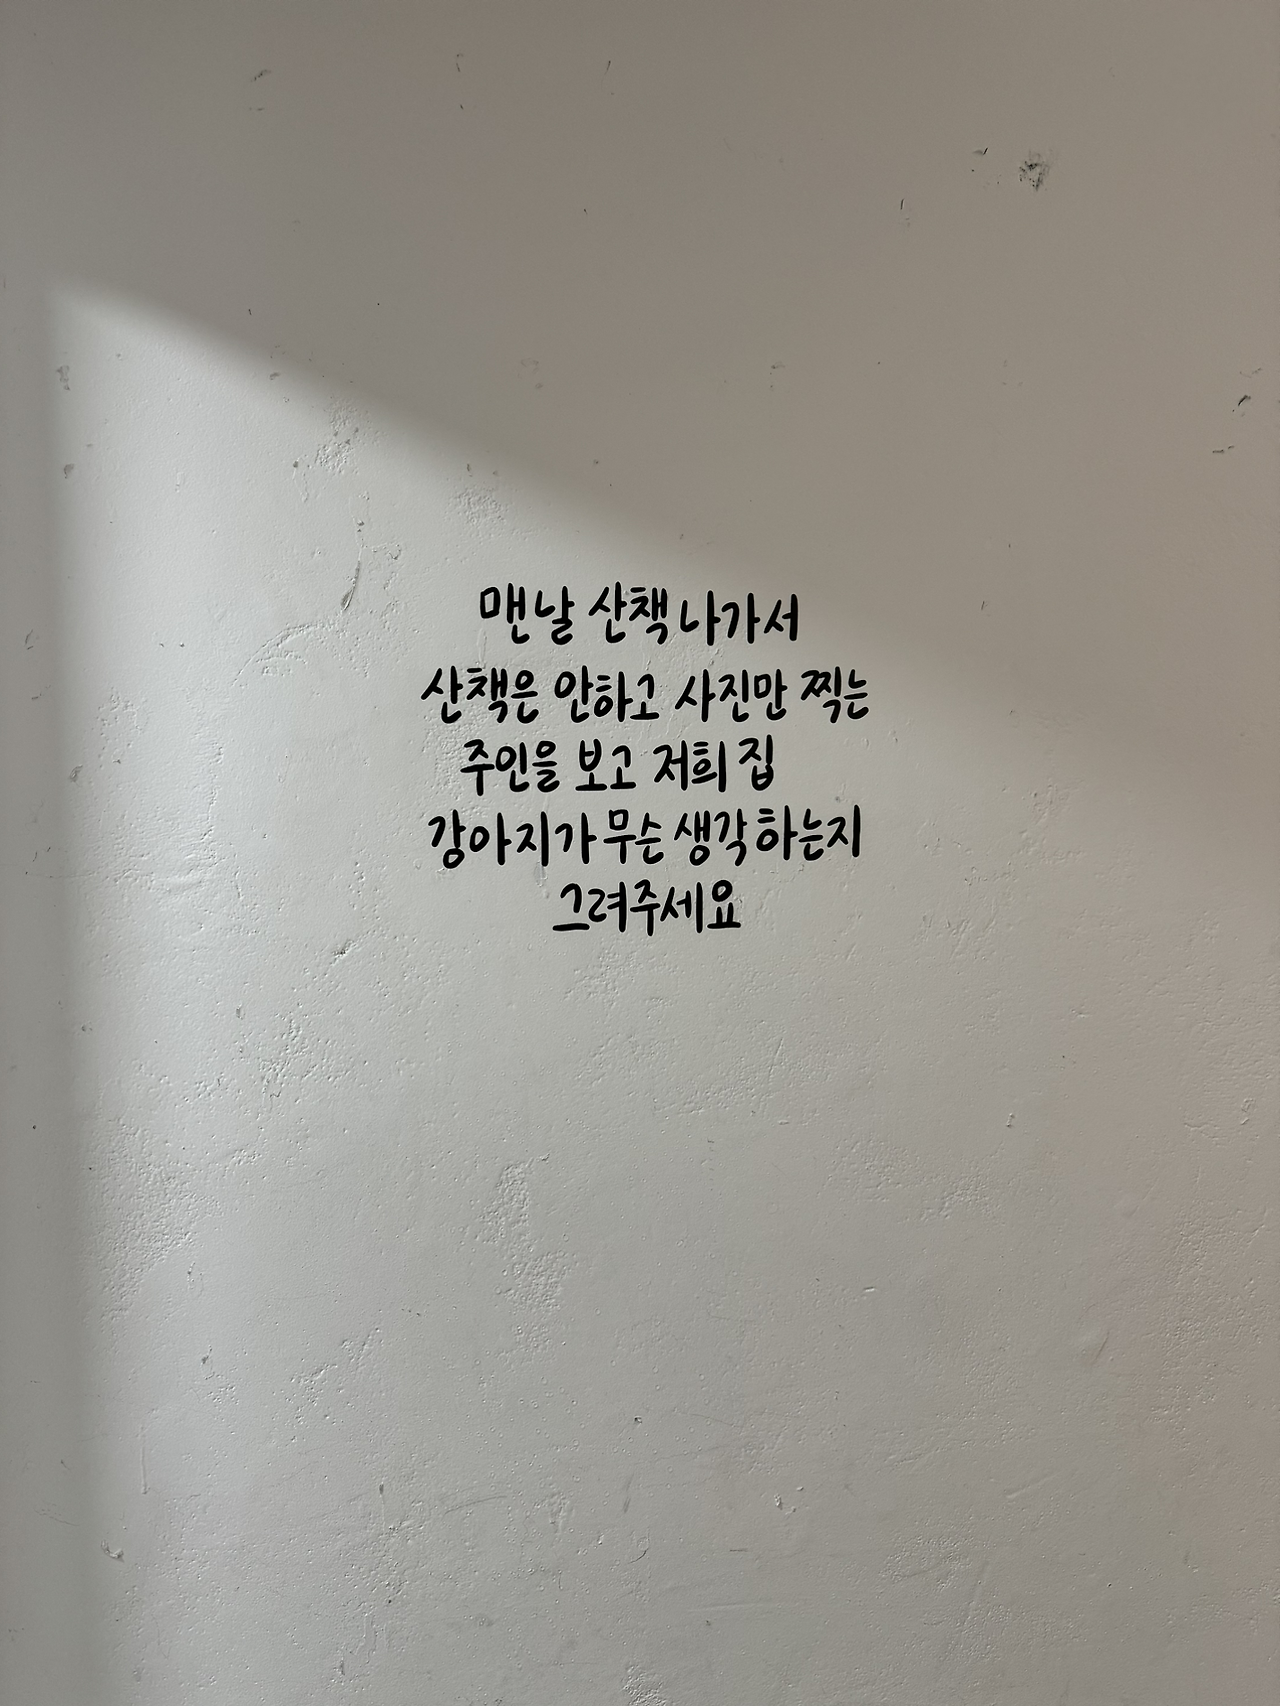 맨날 산책 나가서
산책은 안하고 사진만 찍는
주인을 보고 저희 집
강아지가 무슨 생각 하는지
그려주세요